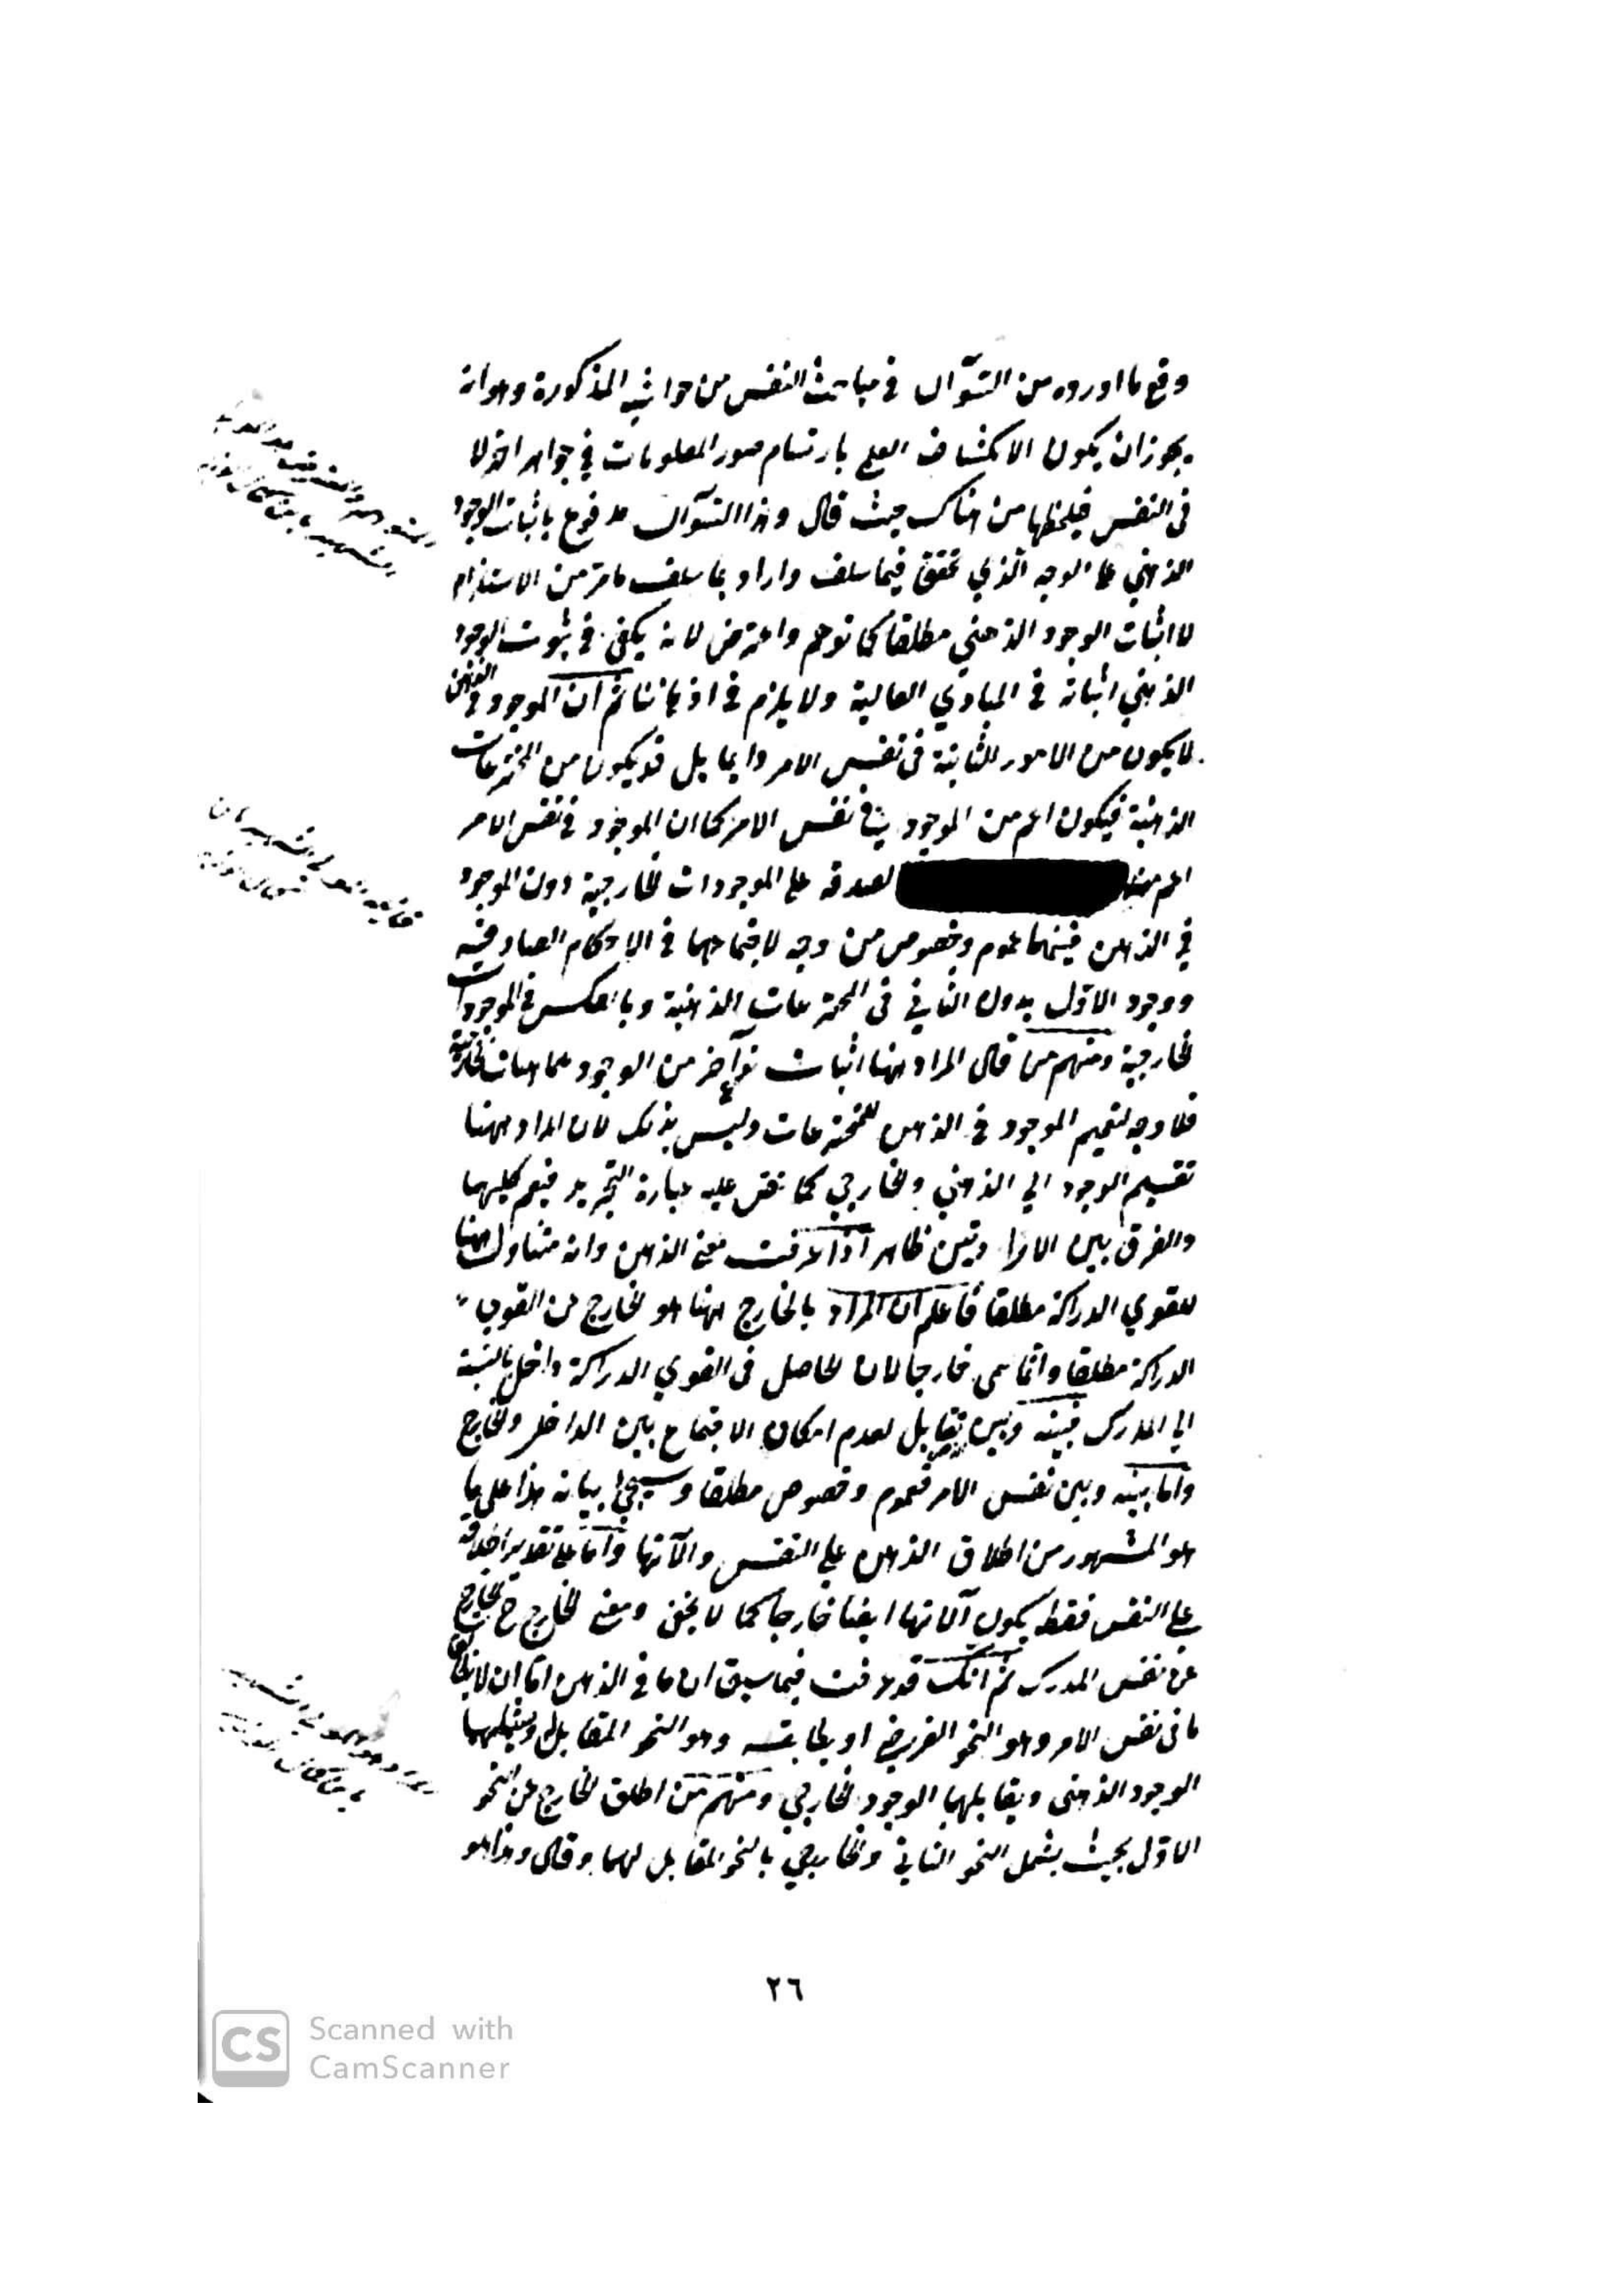 وقع ما اورده من السؤال في مباحث النفس من حواشيه المذكورة وهو انه
يجوز ان يكون الانكشاف العلم بارتسام صور المعلومات في جواهر اخر لا
في النفس فيلحظها من هناك حيث قال وهذا السؤال مدفوع باثبات الوجود
الذهني على الوجه الذي تحقق فيما سلف واراد بما سلف ما مر من الاستلزام
لا اثبات الوجود الذهني مطلقا كما توهم واعترض لانه يكفي في ثبوت الوجود
الذهني اثباته في المبادي العالية ولا يلزم في اذهاننا ثم ان الموجود في الذهن
لا يكون من الامور الثابتة في نفس الامر دايما بل قد يكون من المخترعات
الذهنية فيكون اعم من الموجود في نفس الامر كما ان الموجود في نفس الامر
اعم منه لصدقه على الموجودات الخارجية دون الموجود
في الذهن فبينهما عموم وخصوص من وجه لاجتماعهما في الاحكام الصادقة
ووجود الاول بدون الثاني في المخترعات الذهنية وبالعكس في الموجودات
الخارجية ومنهم من قال المراد ههنا اثبات نوع آخر من الوجود للماهيات الخارجية
فلا وجه لتعميم الموجود في الذهن للمخترعات وليس بذلك لان المراد ههنا
تقسيم الوجود الي الذهني والخارجي كما نص عليه عبارة التجريد فيعم كليهما
والفرق بين الارادتين ظاهر اذا عرفت معنى الذهن وانه متناول ههنا
للقوي الدراكة مطلقا فاعلم ان المراد بالخارج ههنا هو الخارج عن القوي
الدراكة مطلقا وانما سمي خارجا لان الحاصل في القوي الدراكة داخل بالنسبة
الي المدرك فبينه وبين تقابل لعدم امكان الاجتماع بين الداخل والخارج
واما بينه وبين نفس الامر فعموم وخصوص مطلقا وسيجئ بيانه هذا على ما
هو المشهور من اطلاق الذهن على النفس وآلاتها واما على تقدير اطلاقه
على النفس فقط يكون آلاتها ايضا خارجا كما لا يخفى ومعنى الخارج ح الخارج
عن نفس المدرك ثم انك قد عرفت فيما سبق ان ما في الذهن اما ان لا يطابق
ما في نفس الامر وهو النحو الفرضي او يطابقه وهو النحو المقابل ويشملهما
الوجود الذهني ويقابلهما الوجود الخارجي ومنهم من اطلق الخارج عن النحو
الاول بحيث يشمل النحو الثاني والخارجي بالنحو المقابل لهما وقال وهذا هو
٢٦
CS Scanned with
CamScanner